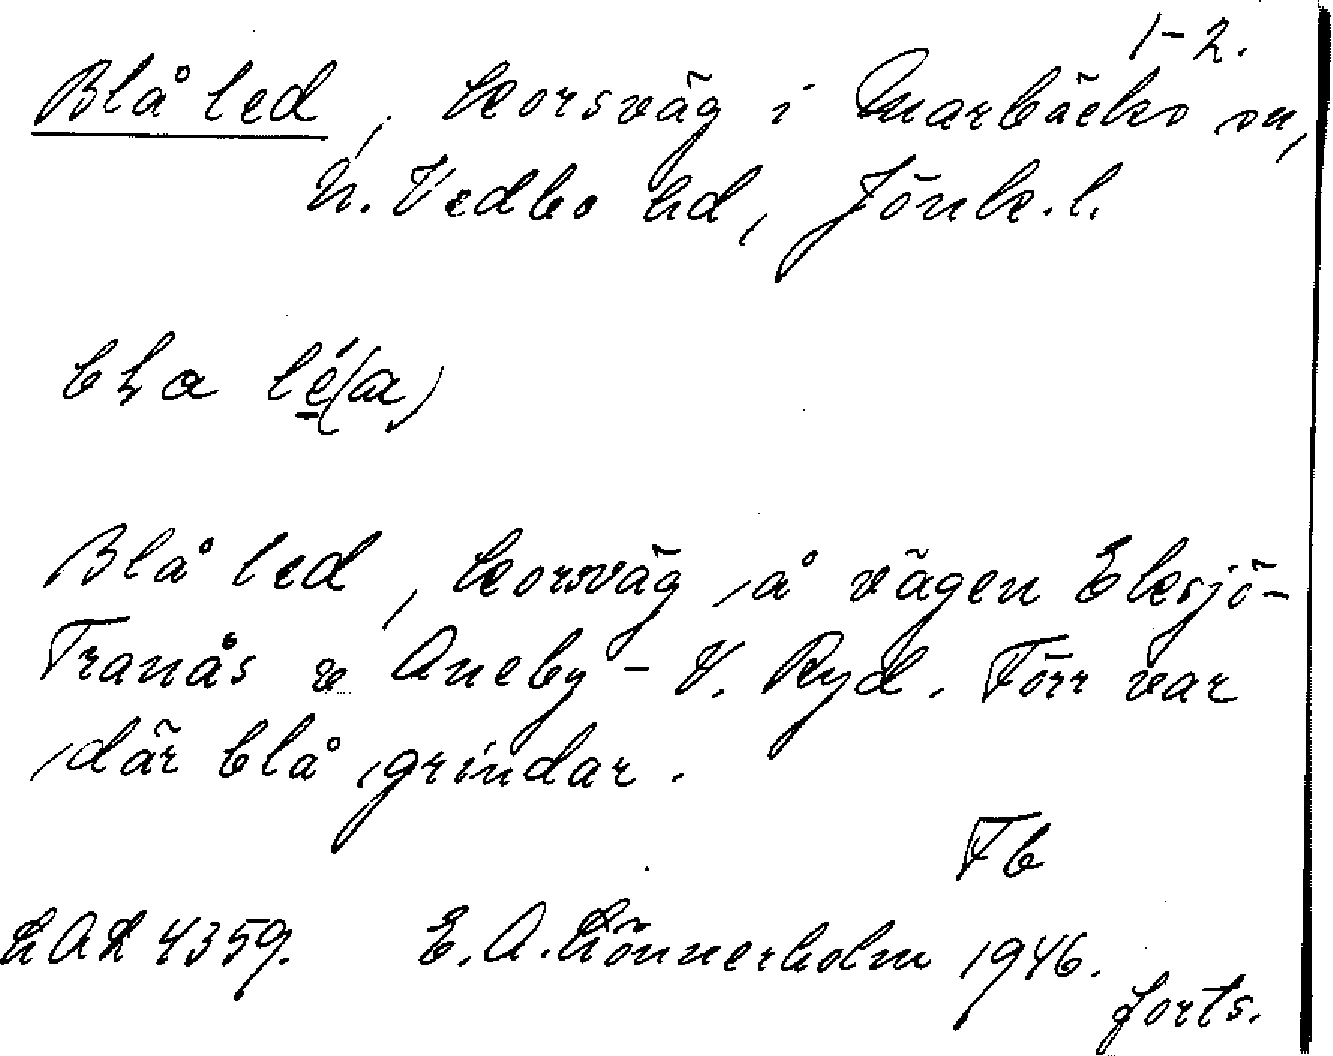 1-2.
Blå led, korsväg i Marbäcks sn,
N. Vedbo hd, Jönk. l.
Blå led, korsväg å vägen Eksjö-
Tranås v Aneby - V. Ryd. Förr var
där blå grindar.
Fb
LAL 4359. E. A. Lönnerholm 1946.
forts.